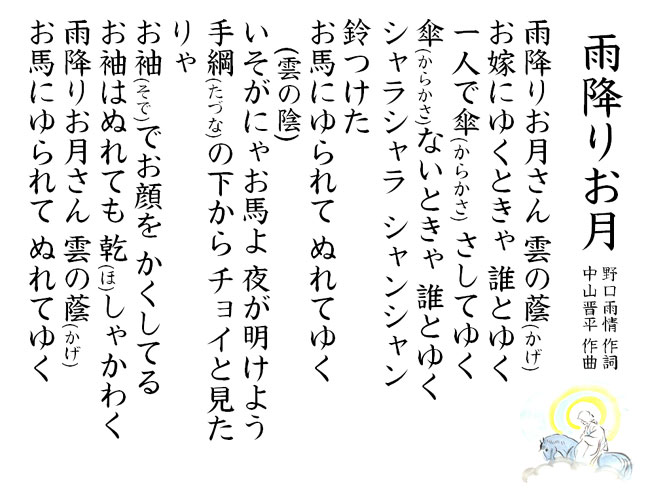 雨降りお月
野口雨情 作詞
中山晋平 作曲
雨降りお月さん 雲の蔭(かげ)
お嫁にゆくときゃ 誰とゆく
一人で傘(からかさ)さしてゆく
傘(からかさ)ないときゃ 誰とゆく
シャラシャラ シャンシャン
鈴つけた
お馬にゆられて ぬれてゆく
(雲の陰)
いそがにゃお馬よ 夜が明けよう
手綱(たづな)の下から チョイと見た
りゃ
お袖(そで)でお顔を かくしてる
お袖はぬれても 乾(ほ)しゃかわく
雨降りお月さん 雲の蔭(かげ)
お馬にゆられて ぬれてゆく